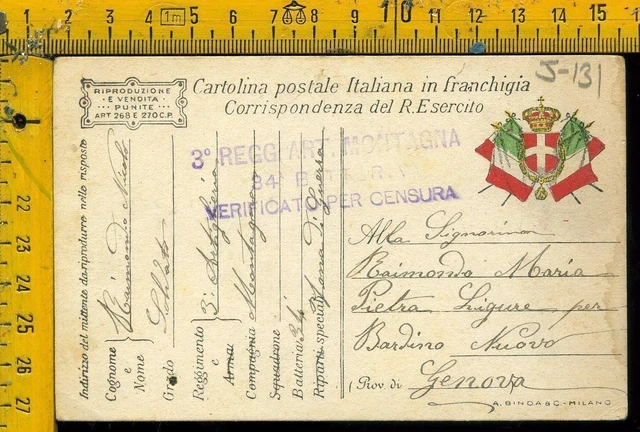 1 2 3 4 1m 5 6 7 8 9 10 11 12 13 14 15
22
23
24
25
26
27
J-131
RIPRODUZIONE
E VENDITA
PUNITE
ART 268 E 270 C.P.
Cartolina postale Italiana in franchigia
Corrispondenza del R. Esercito
3° REGG. ART. MONTAGNA
34ª BATTERIA
VERIFICATO PER CENSURA
Indirizzo del mittente da riprodurre nella risposta
Cognome e Nome Raimondo
Grado Soldato
Reggimento e Arma 3° Artiglieria
Compagnia Montagna
Squadrone
Batteria 34
Riparti speciali Zona di Guerra
Alla Signorina
Raimondo Maria
Pietra Ligure per
Bardino Nuovo
(Prov. di Genova
A. BINDA & C. - MILANO